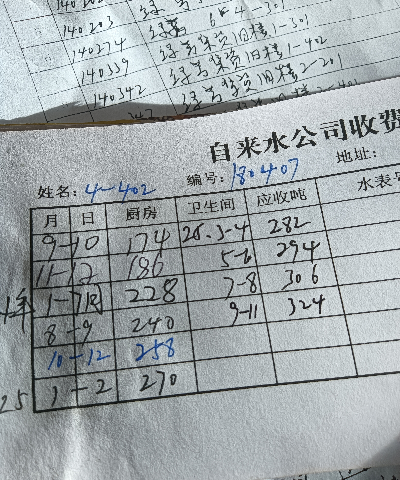 140203 6-4-301
140274 绿 莱茵旧楼1-301
140339 绿 莱茵旧楼1-402
140342 绿 莱茵旧楼2-201
自来水公司收费
姓名: 4-402 编号: 180407 地址:
月 日 厨房 卫生间 应收吨 水表
9-10 174 25.3-4 282
11-12 186 5-6 294
1-7月 228 7-8 306
8-9 240 9-11 324
10-12 258
25 1-2 270